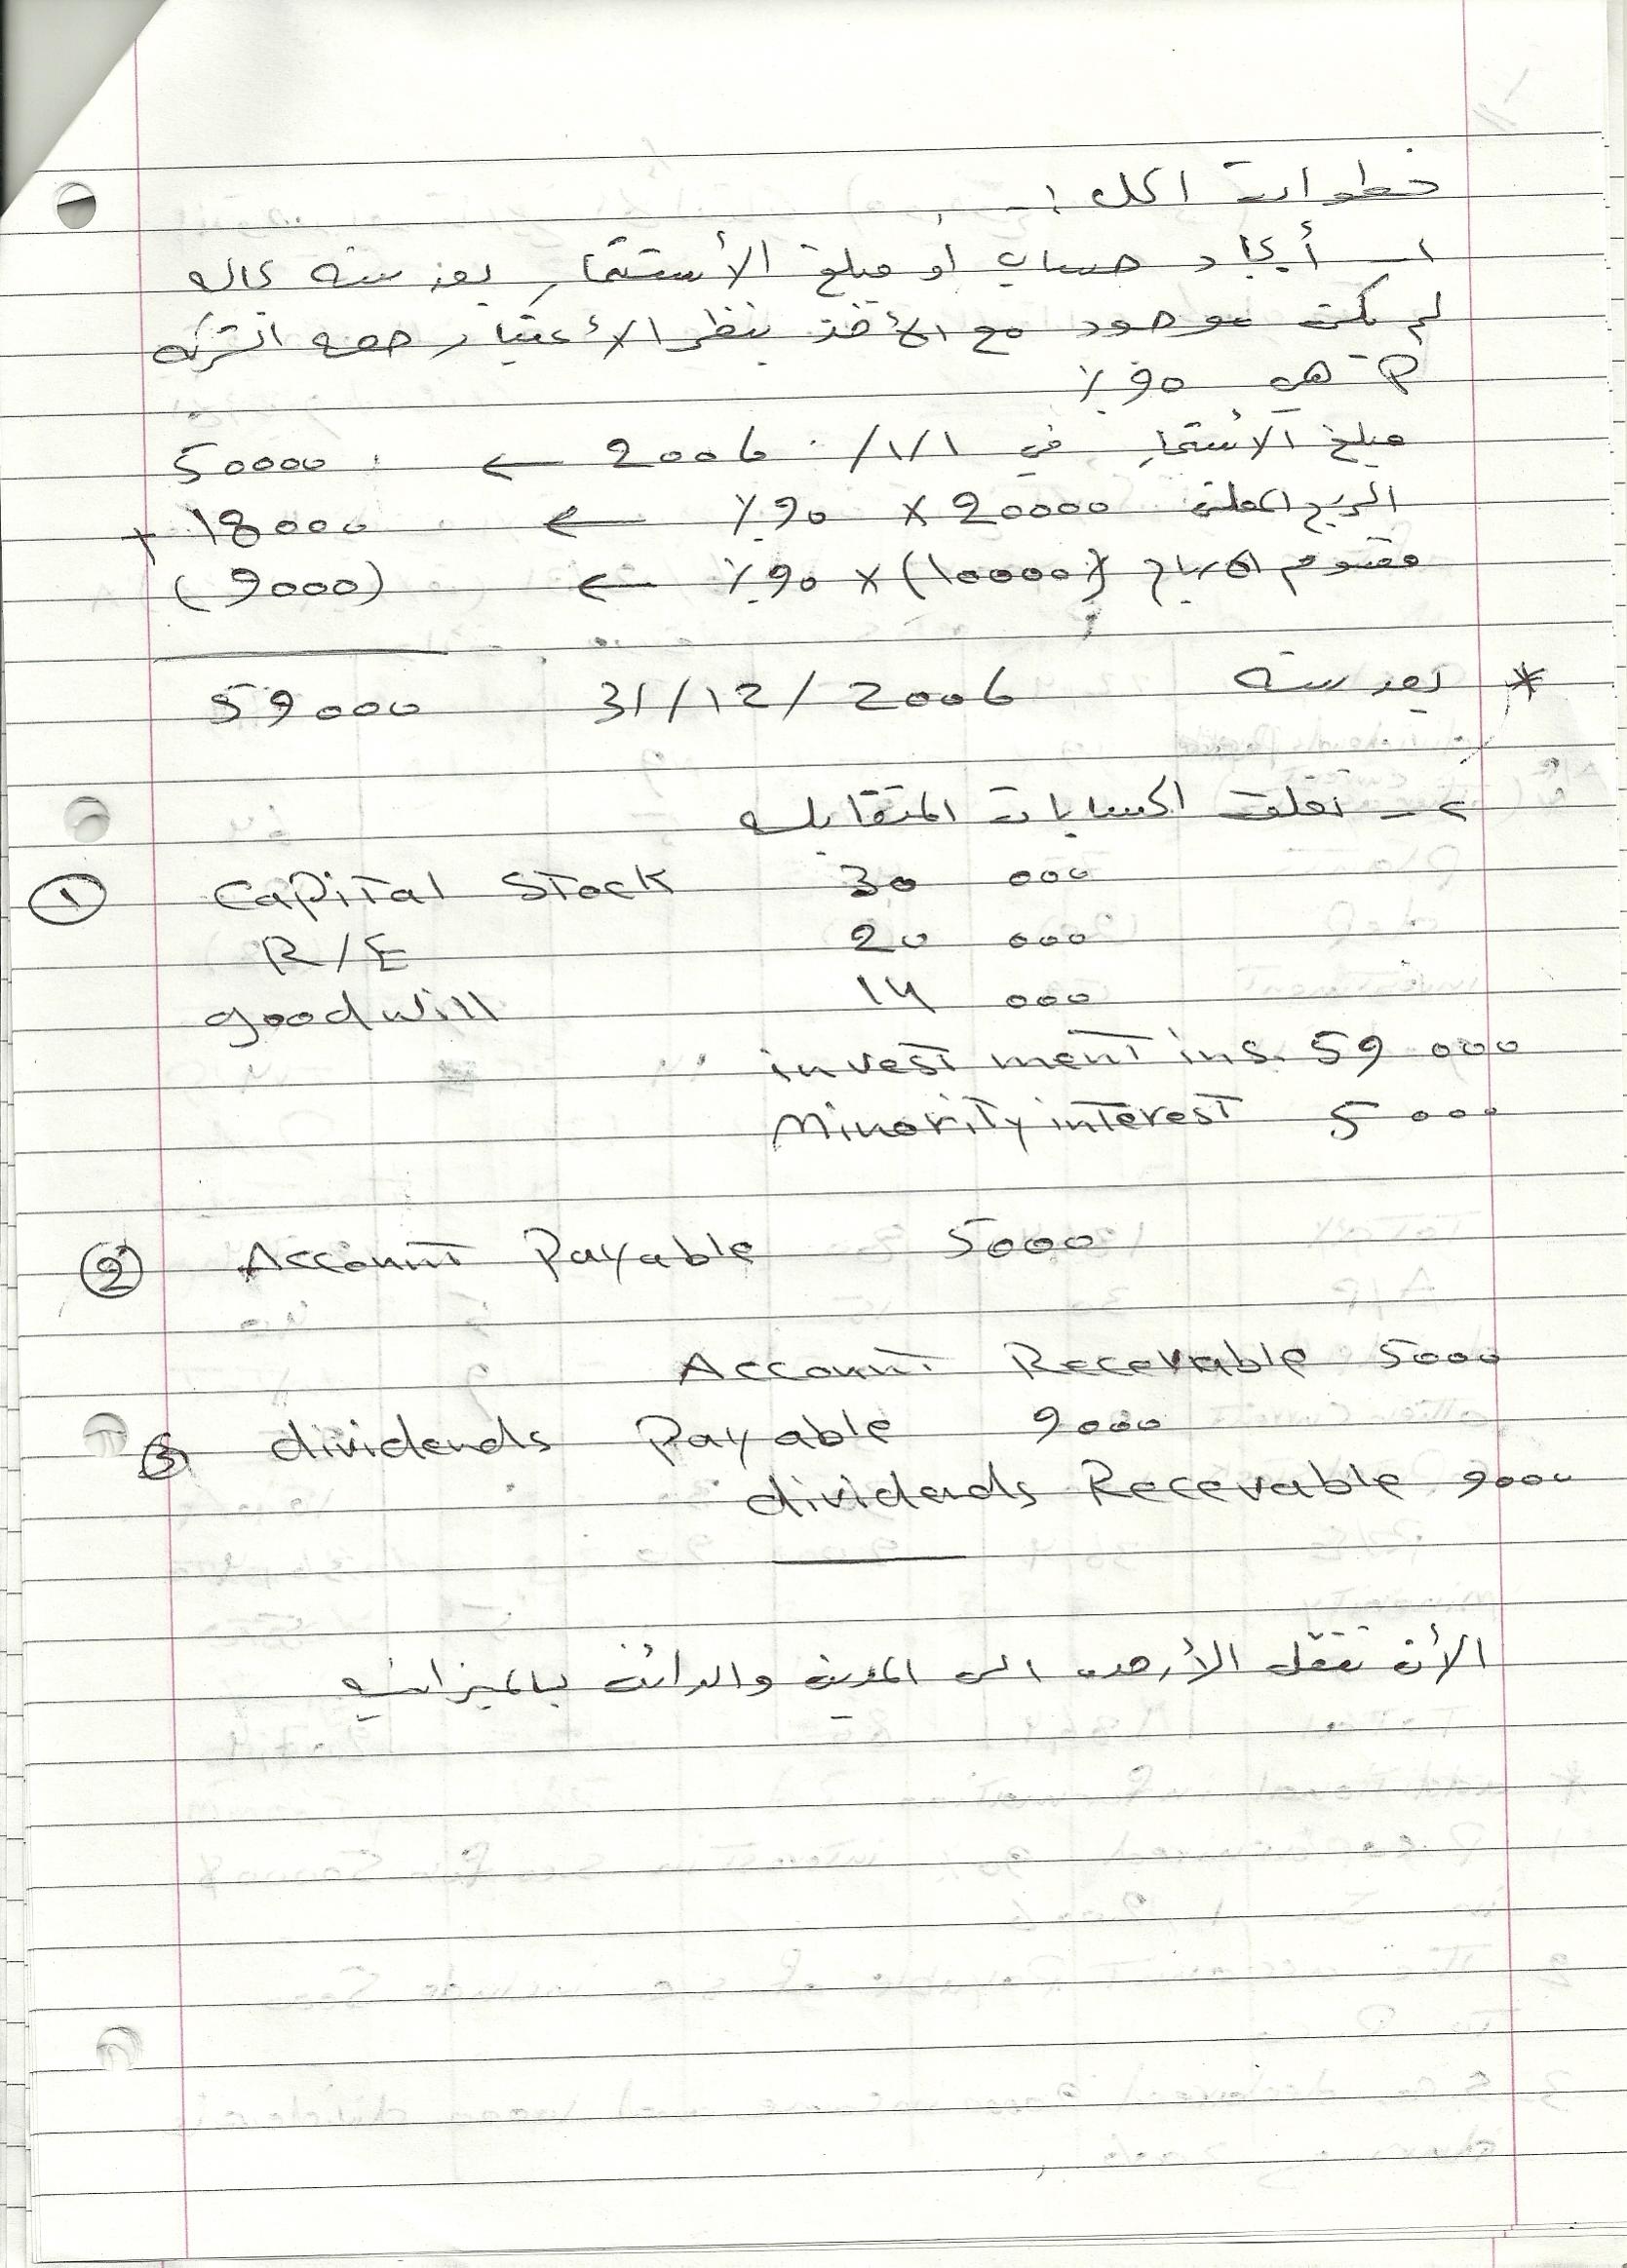 خطوات الحل :-
١- أيجاد حساب او مبلغ الأستثمار بعد سنه بحاله
لم يكن موجود مع الأخذ بنظر الأعتبار حصه الشركه
P هي ٩٠٪
مبلغ الاستثمار في ١/١/ 2006 ← 50000
الربح المعلن 20000 × 90٪ ← 18000 +
مقسوم الارباح (10000) × 90٪ ← (9000)
* بعد سنه 31/12/2006 59000
٢- نغلق الحسابات المتقابله
① Capital Stock 30 000
R/E 20 000
goodwill 14 000
investment in s. 59 000
Minority interest 5 000
② Account Payable 5000
Account Recevable 5000
③ dividends Payable 9000
dividends Recevable 9000
الأن ننقل الأرصده الى المدين والدائن بالميزانيه